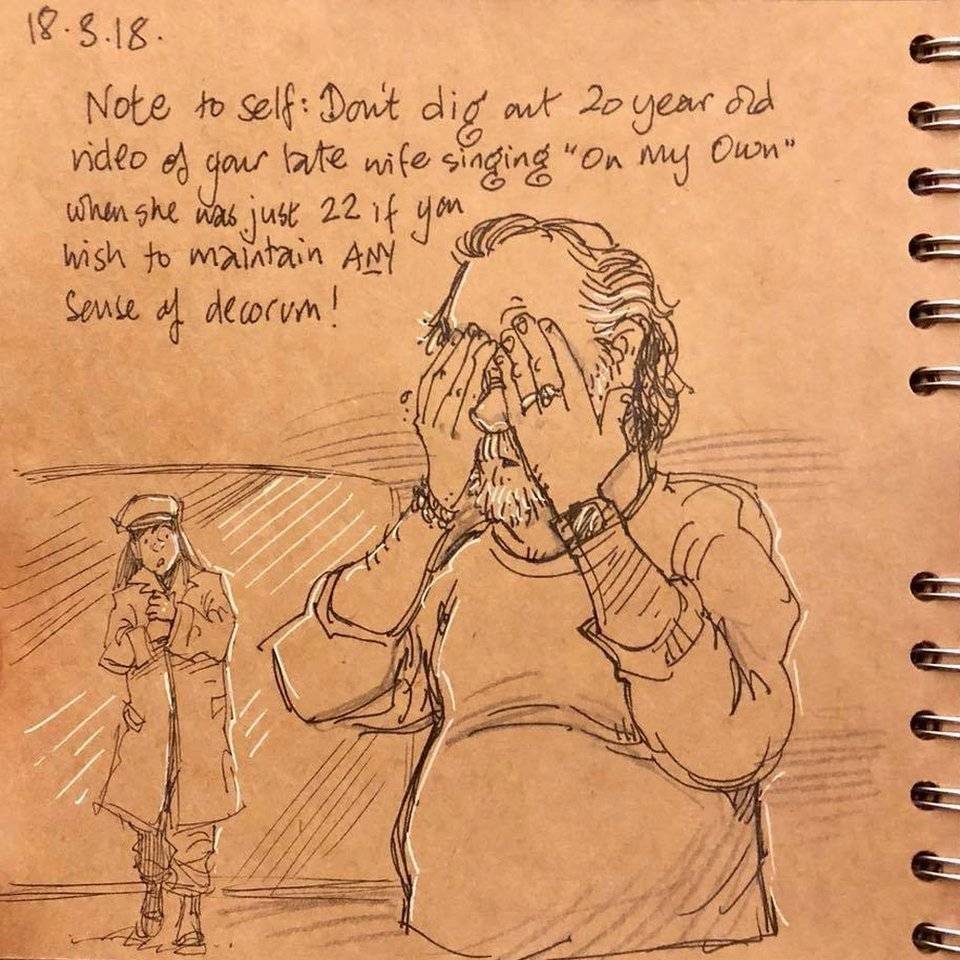 18.3.18.
Note to self: Don't dig out 20 year old
video of your late wife singing "On My Own"
when she was just 22 if you
wish to maintain ANY
sense of decorum!